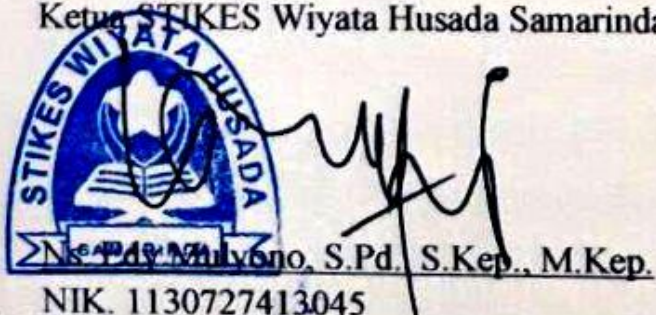 Ketua STIKES Wiyata Husada Samarinda
STIKES WIYATA HUSADA
SAMARINDA
Ns. Edy Mulyono, S.Pd., S.Kep., M.Kep.
NIK. 1130727413045